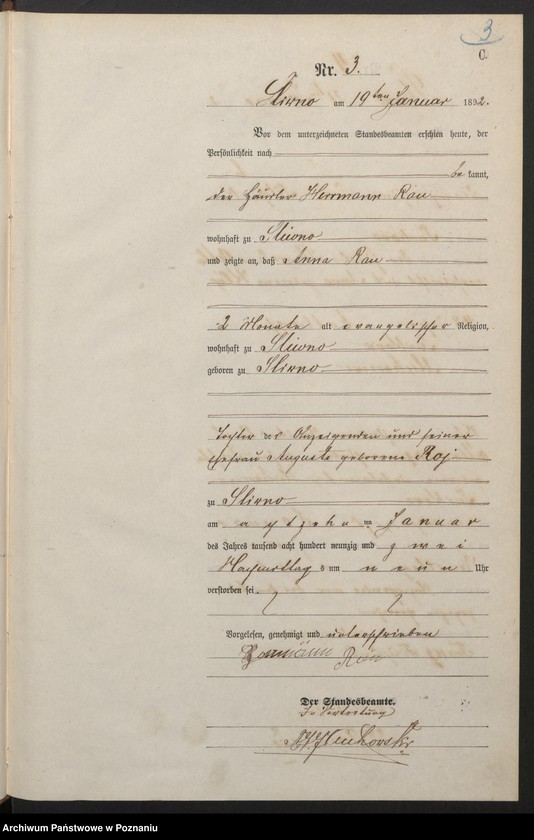 3
C.
Nr. 3.
Slivno am 19ten Januar 1892.
Vor dem unterzeichneten Standesbeamten erschien heute, der
Persönlichkeit nach
be kannt,
der Häusler Herrmann Rau
wohnhaft zu Slivno
und zeigte an, daß Anna Rau
2 Monate alt evangelischer Religion,
wohnhaft zu Slivno
geboren zu Slivno
Tochter des Anzeigenden und seiner
Ehefrau Auguste geborene Roj
zu Slivno
am achtzehnten Januar
des Jahres tausend acht hundert neunzig und zwei
Nachmittags um neun Uhr
verstorben sei.
Vorgelesen, genehmigt und unterschrieben
Hermann Rau
Der Standesbeamte.
In Vertretung
Archiwum Państwowe w Poznaniu